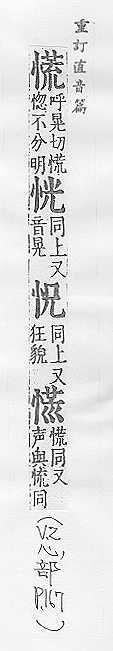 重訂直音篇
慌呼晃切慌惚不分明恍同上又音晃怳同上又狂貌㤺慌同又声無慌同
(V.2心部P.167)